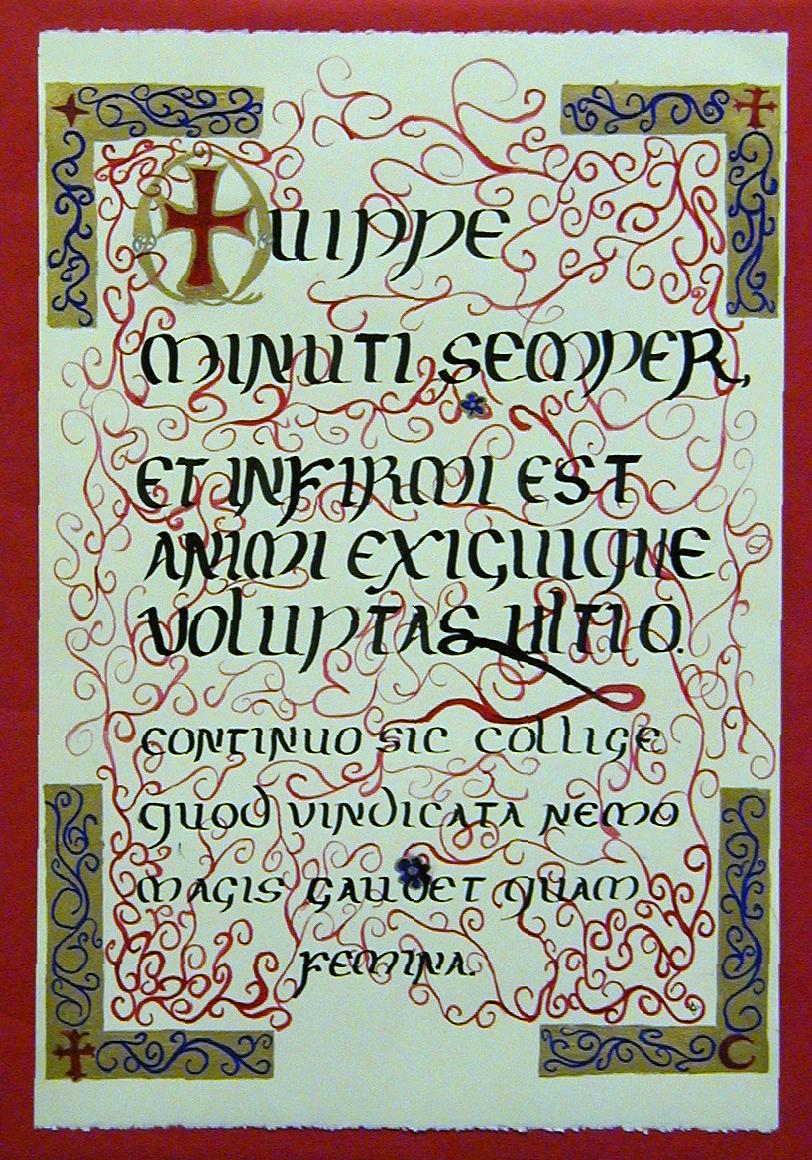 Quippe
minuti semper,
et infirmi est
animi exiguique
voluptas ultio.
continuo sic collige
quod vindicata nemo
magis gaudet quam
femina.
C